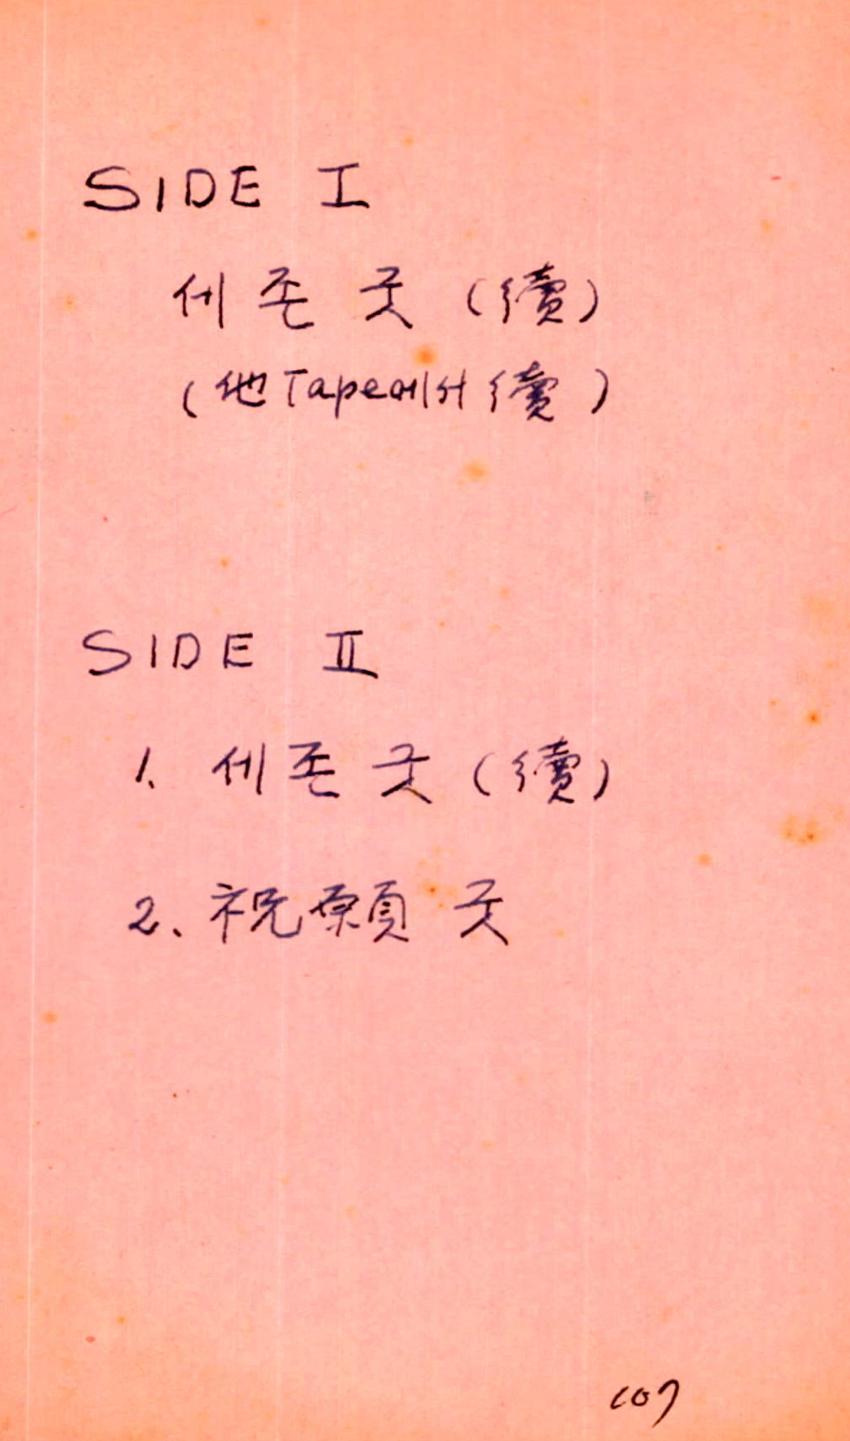 SIDE I
세존 굿 (續)
(他 Tape에서 續)
SIDE II
1. 세존 굿 (續)
2. 祝願 굿
107